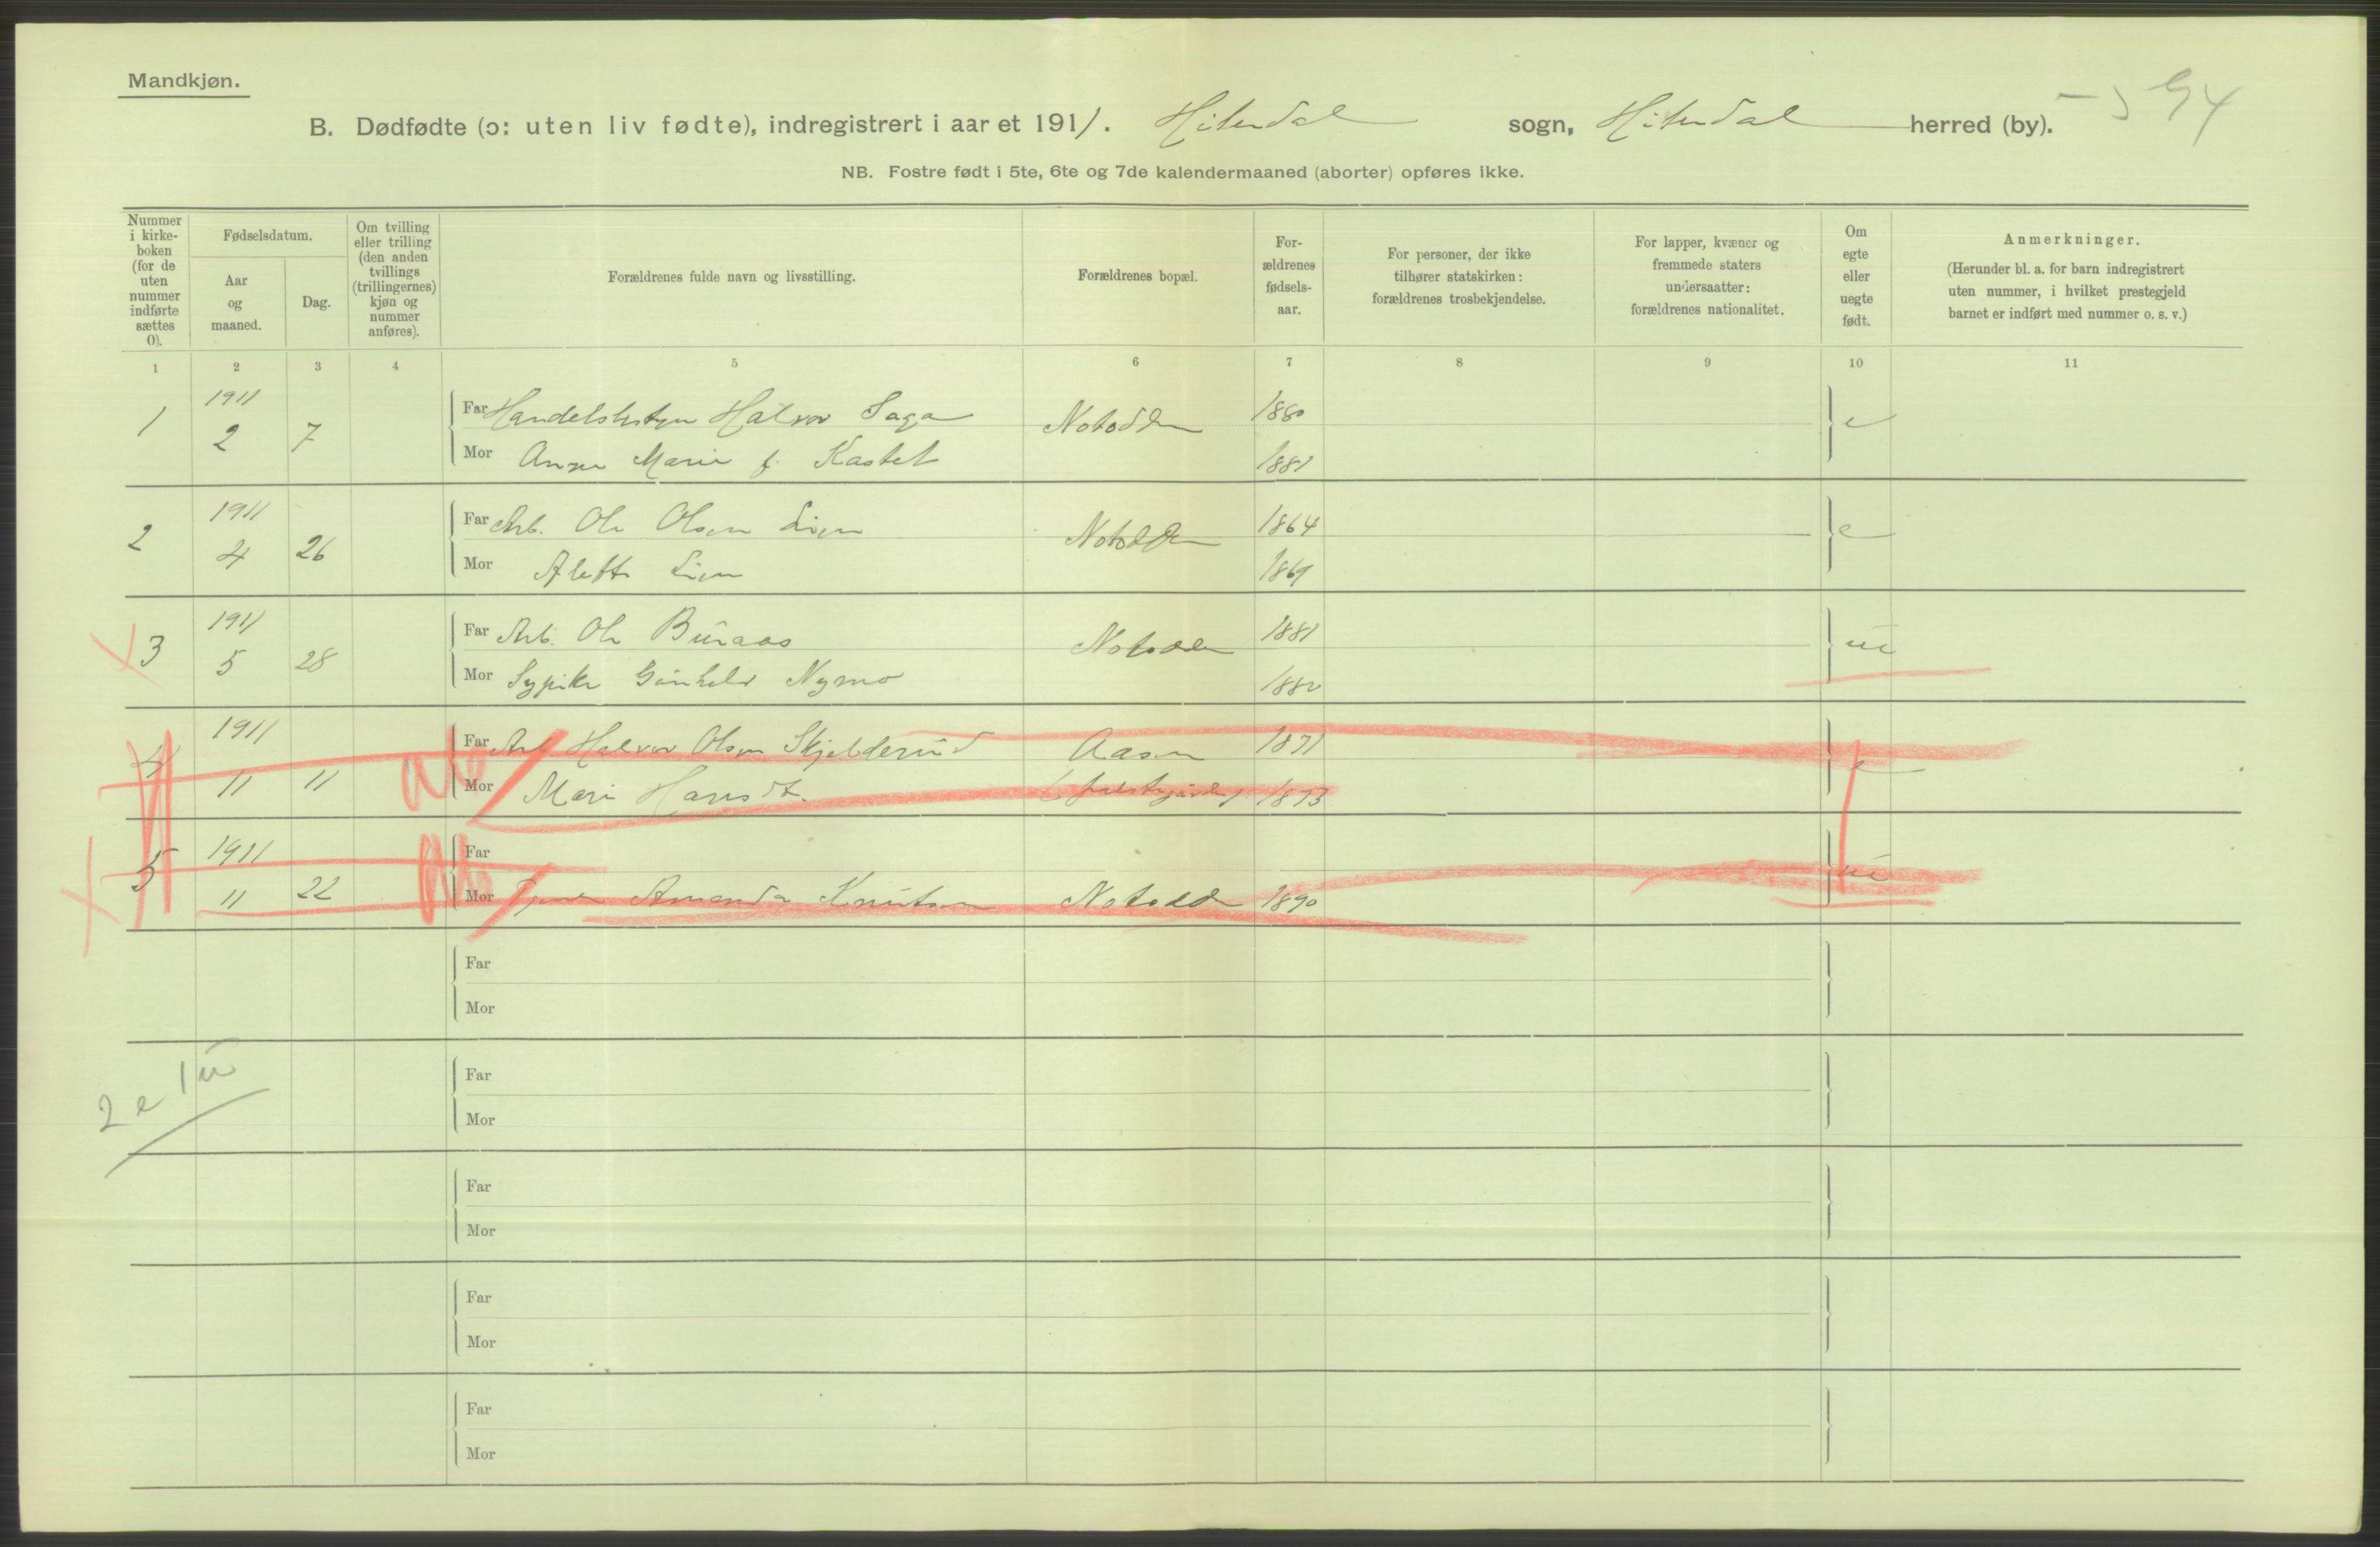 Mandkjøn.
B. Dødfødte (ɔ: uten liv fødte), indregistrert i aaret 1911. Hiterdal sogn, Hiterdal herred (by).
NB. Fostre født i 5te, 6te og 7de kalendermaaned (aborter) opføres ikke.
Nummer i kirke-boken (for de uten nummer indførte sættes 0).
Fødselsdatum.
Aar og maaned.
Dag.
Om tvilling eller trilling (den anden tvillings (trillingernes) kjøn og nummer anføres).
Forældrenes fulde navn og livsstilling.
Forældrenes bopæl.
For-ældrenes fødsels-aar.
For personer, der ikke tilhører statskirken: forældrenes trosbekjendelse.
For lapper, kvæner og fremmede staters undersaatter: forældrenes nationalitet.
Om egte eller uegte født.
Anmerkninger.
(Herunder bl. a. for barn indregistrert uten nummer, i hvilket prestegjeld barnet er indført med nummer o. s. v.)
1 2 3 4 5 6 7 8 9 10 11
1 1911 2 7 Far Halvor Saga Notodden 1880 e
Mor Anne Marie f. Kastet 1881
2 1911 4 26 Far Arb. Ole Olsen Lien Notodden 1864 e
Mor Lien 1869
3 1911 5 28 Far Arb. Ole Buraas Notodden 1881 ue
Mor Sypike Gunhild Nymo 1882
4 1911 11 11 Far Arb. Halvor Olsen Skjelderud Aasen 1871 e
Mor Mari Hansdt. 1873
5 1911 11 22 Far
Mor Amanda Knutsen Notodden 1890 ue
Far
Mor
2 e 1 u
Far
Mor
Far
Mor
Far
Mor
Far
Mor